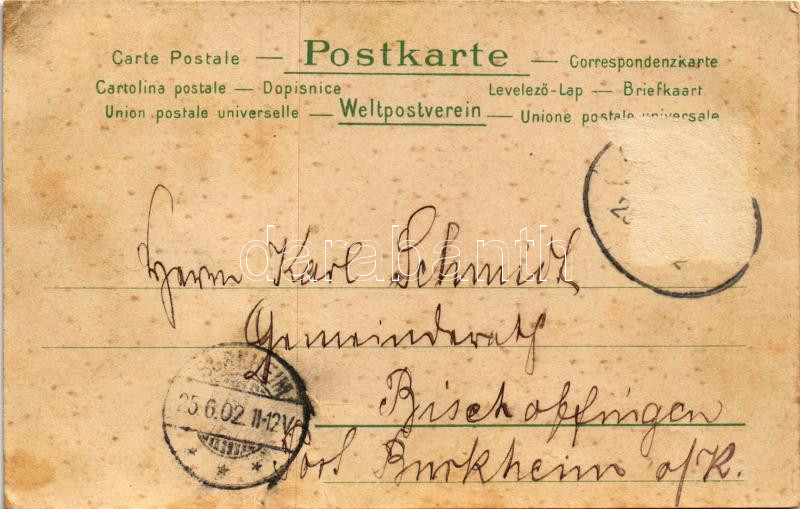 Carte Postale — Postkarte — Correspondenzkarte
Cartolina postale — Dopisnice Levelező-Lap — Briefkaart
Union postale universelle — Weltpostverein — Unione postale universale
Herrn Karl Schmidt
Gemeinderath
Bischoffingen
Post Burkheim a/R.
25.6.02 11-12V
darabanth